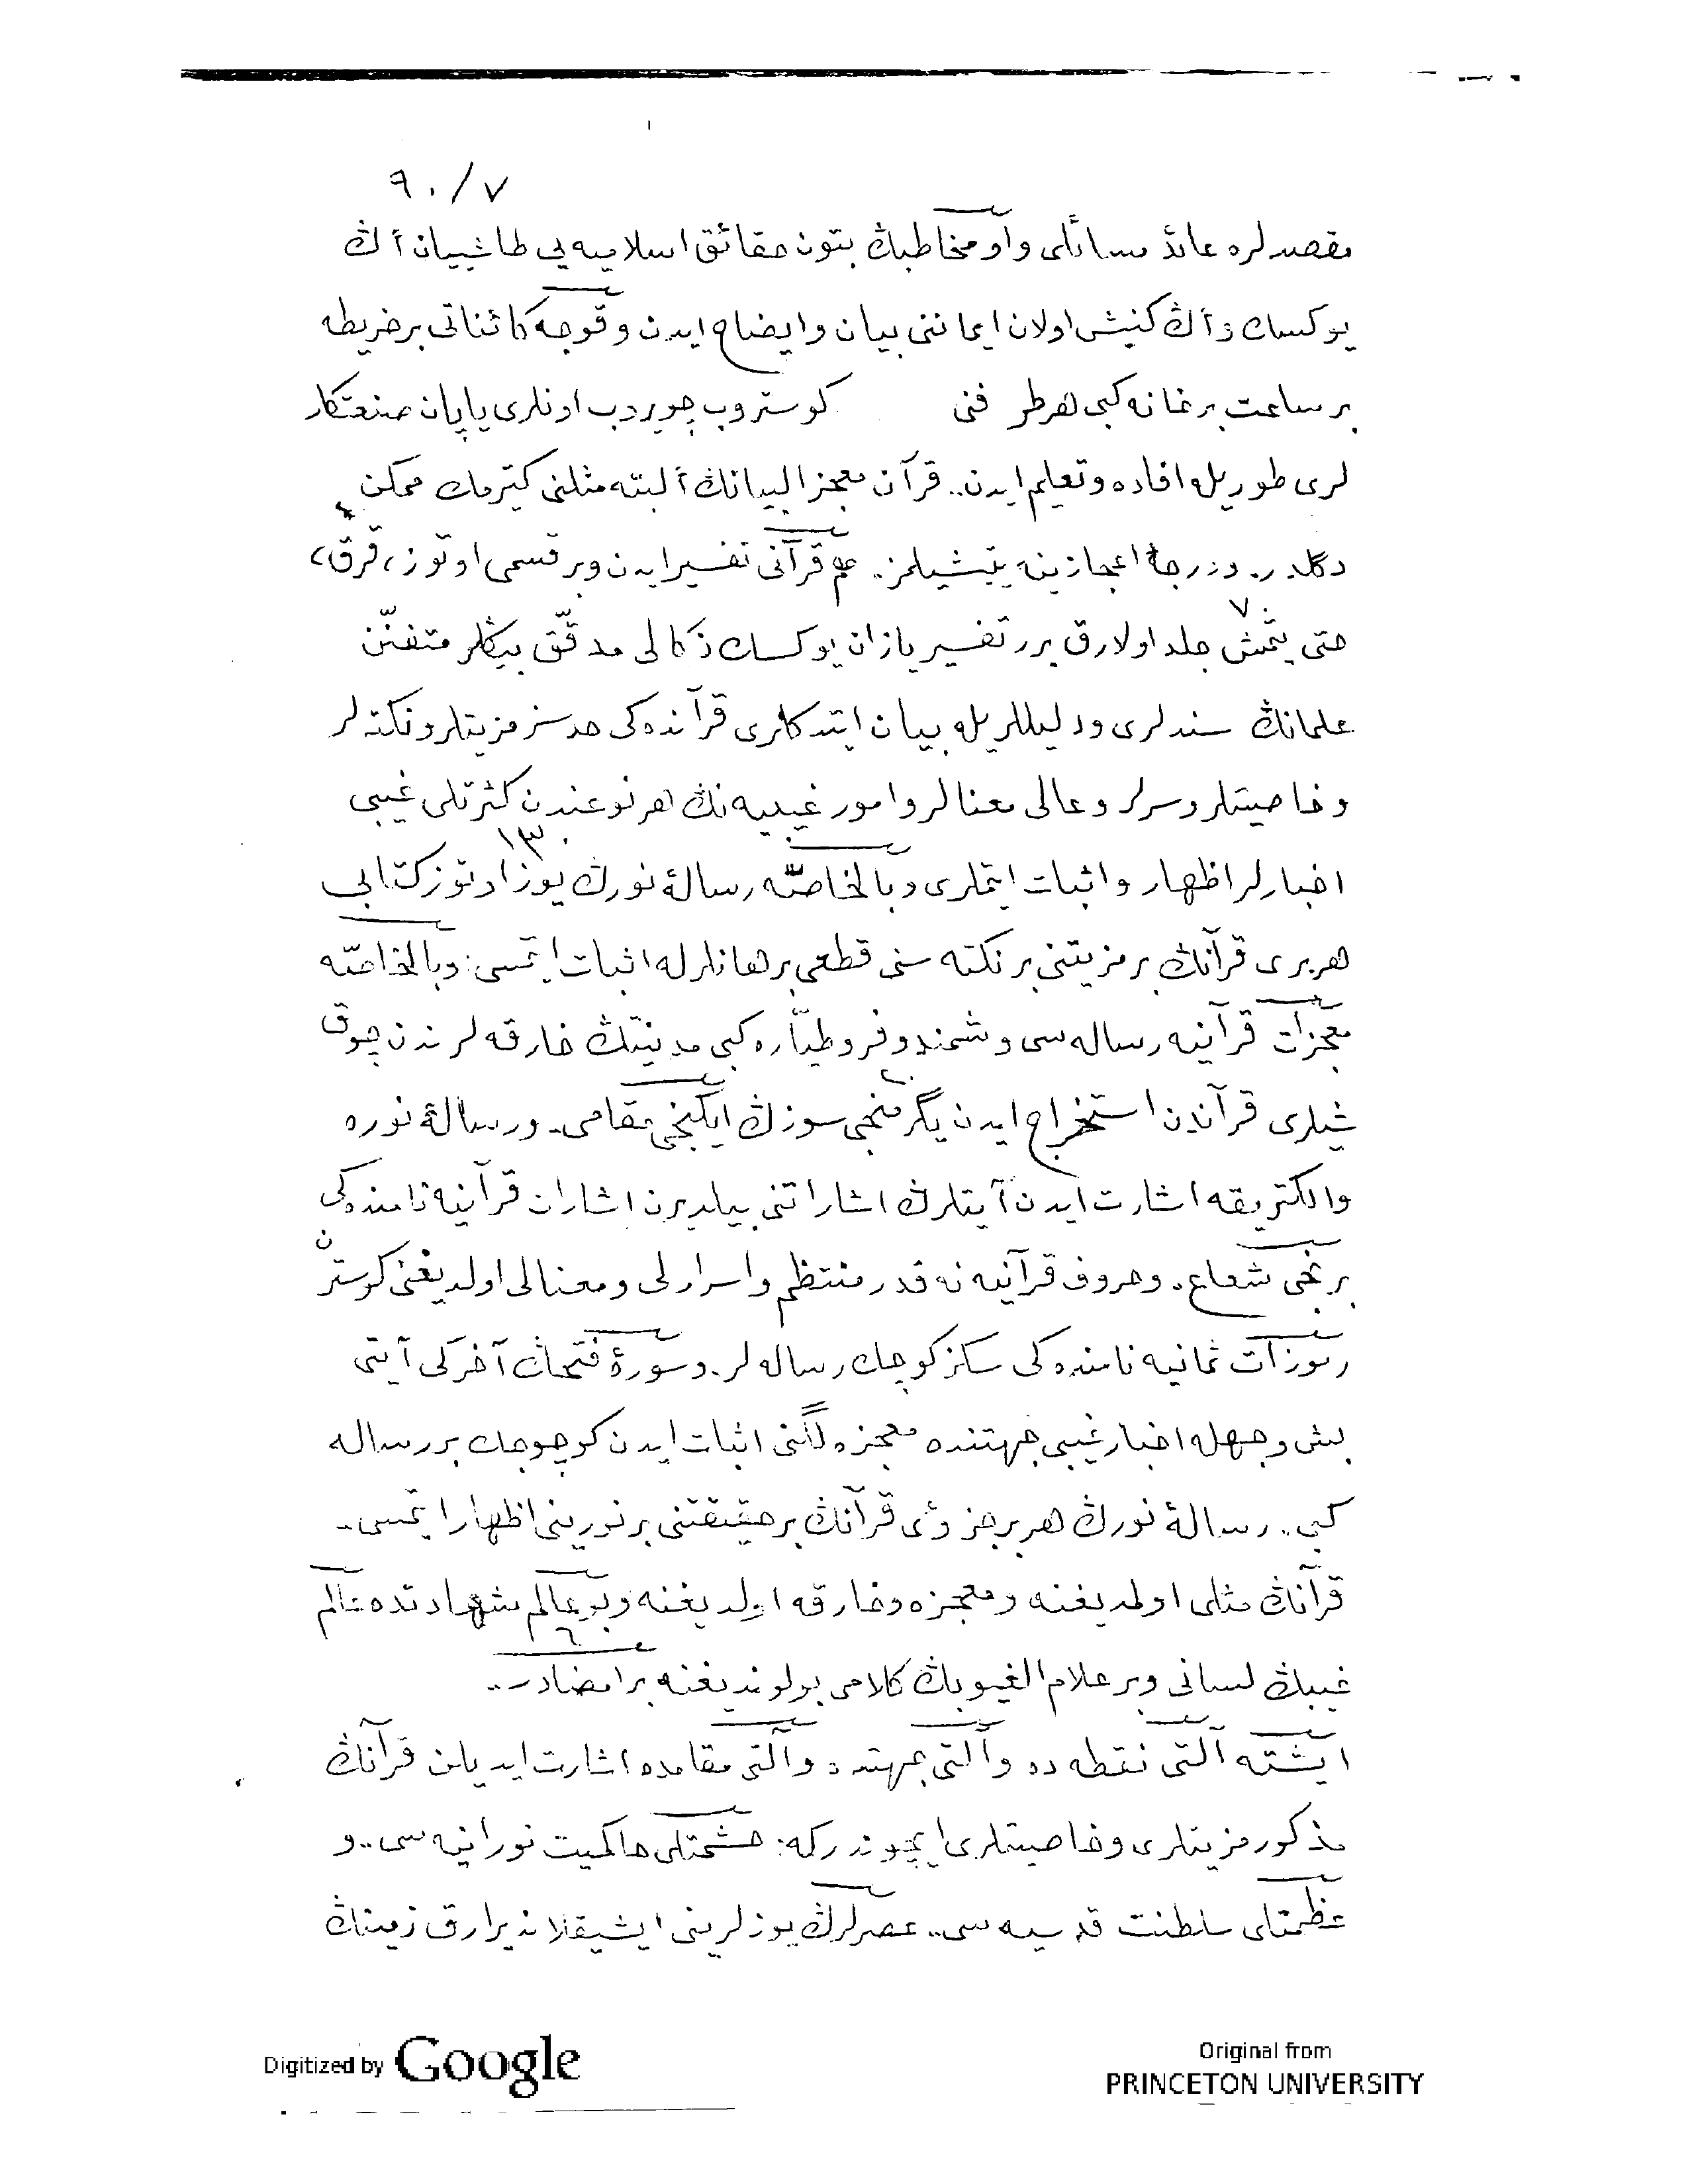 ٩٠/٧
مقصدلره عائد مسائلی و او مخاطبڭ بتون حقائق اسلامیه یی طاشییان أڭ
یوكسك و أڭ كنیش اولان ایماننی بیان و ایضاح ایدن و قوجه كائناتی بر خریطه
بر ساعت بر خانه كبی هر طرفنی كوستروب چویروب اونلری یاپان صنعتكار
لری طوریله افاده و تعلیم ایدن.. قرآن معجز البیانڭ ألبته مثلنی كتیرمك ممكن
دگلدر. و درجۀ اعجازینه یتیشیلمز. هم قرآنی تفسیر ایدن و بر قسمی اوتوز، قرق،
٧٠
حتی یتمش جلد اولارق برر تفسیر یازان یوكسك ذكالی مدقّق بیڭلر متفنّن
علمانڭ سندلری و دلیللریله بیان ایتدكلری قرآنده كی حدسز مزیتلر و نكته لر
و خاصیتلر و سرلر و عالی معنالر و امور غیبیه نڭ هر نوعندن كثرتلی غیبی
١٣٠
اخبارلر اظهار و اثبات ایتملری و بالخاصّه رسالۀ نورڭ یوز اوتوز كتابی
هربری قرآنڭ بر مزیتنی بر نكته سنی قطعی برهانلرله اثبات ایتمسی: و بالخاصّه
معجزات قرآنیه رساله سی و شمندوفر و طیّاره كبی مدنیتڭ خارقه لرندن چوق
٢٠
شیلری قرآندن استخراج ایدن یگرمنجی سوزڭ ایكنجی مقامی. و رسالۀ نوره
و الكتریقه اشارت ایدن آیتلرڭ اشاراتنی بیلدیرن اشارات قرآنیه نامنده كی
برنجی شعاع. و حروف قرآنیه نه قدر منتظم و اسرارلی و معنالی اولدیغنی كوسترن
رموزات ثمانیه نامنده كی سكز كوچك رساله لر. و سورۀ فتحڭ آخركی آیتی
بش وجهله اخبار غیبی جهتنده معجزه لگنی اثبات ایدن كوچوجك بر رساله
كبی.. رسالۀ نورڭ هر بر جزؤی قرآنڭ بر حقیقتنی بر نورینی اظهار ایتمسی..
قرآنڭ مثلی اولمدیغنه و معجزه و خارقه اولدیغنه و بو عالم شهادتده عالم
٦
غیبڭ لسانی و بر علام الغیوبڭ كلامی بولوندیغنه بر امضادر..
ایشته آلتی نقطه ده و آلتی جهتده و آلتی مقامده اشارت ایدیلن قرآنڭ
مذكور مزیتلری و خاصیتلری ایچوندر كه: حشمتلی حاكمیت نورانیه سی.. و
عظمتلی سلطنت قدسیه سی.. عصرلرڭ یوزلرینی ایشیقلاندیرارق زمینڭ
Digitized by Google
Original from
PRINCETON UNIVERSITY